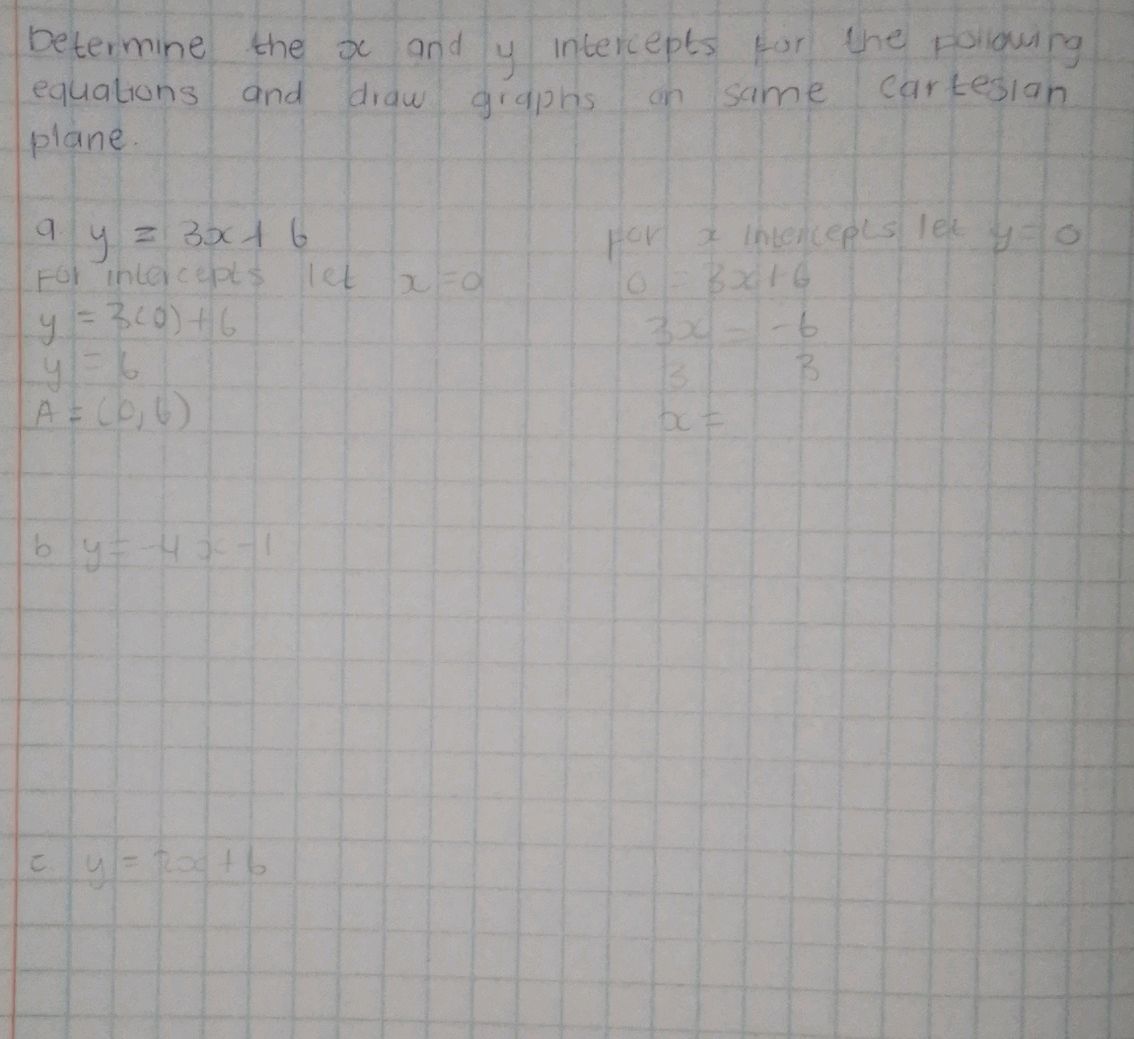 Determine the x and y intercepts for the following
equations and draw graphs on same cartesian
plane.
a y = 3x + 6
For intercepts let x = 0
y = 3(0) + 6
y = 6
A = (0,6)
For x intercepts let y = 0
0 = 3x + 6
3x = -6
3 3
x =
b y = -4x - 1
c y = 2x + 6